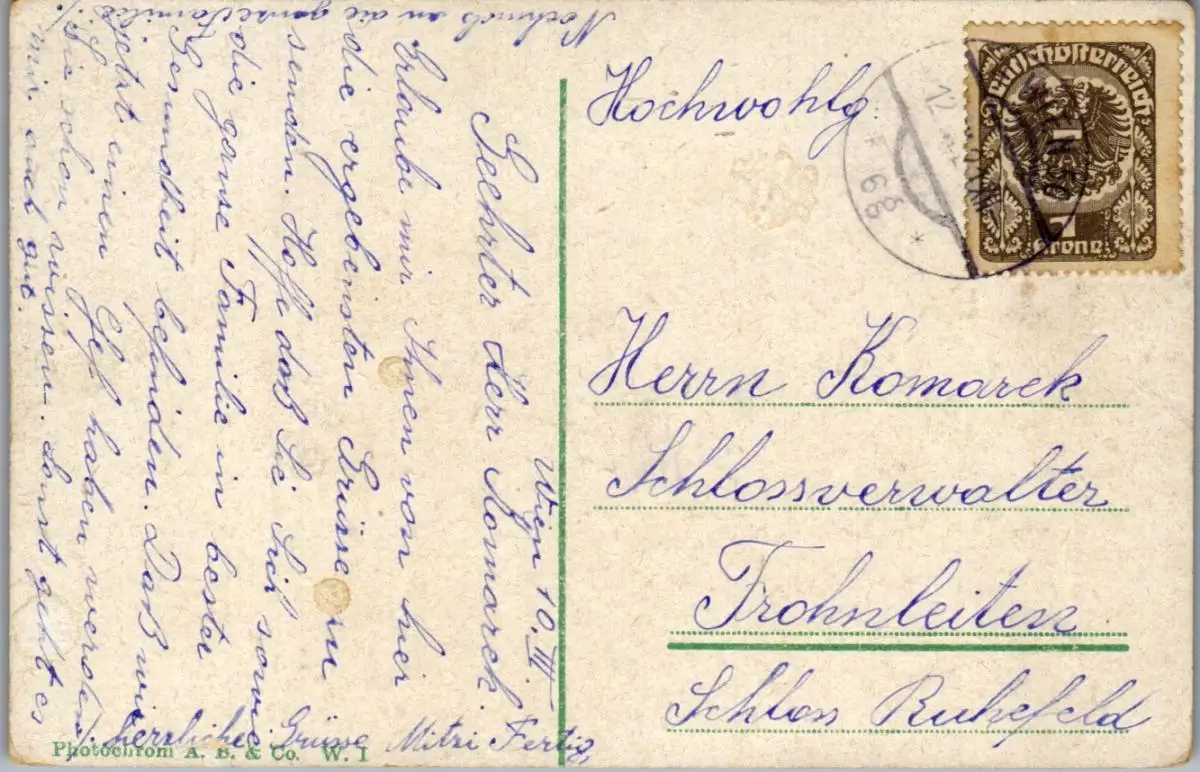 Wien 10. III
Geehrter Herr Komarek.
Erlaube mir Ihnen von hier
die ergebensten Grüsse zu
senden. Hoffe daß Sie Sich sowie
die ganse Familie in bester
Gesundheit befinden. Daß wir
jetzt einen Chef haben werden
Sie schon wissen. Sonst geht es
mir auch gut.
Nochmals an die ganse Familie
herzliche Grüsse Mitzi Fertig
Photochrom A. B. & Co. W. I
Hochwohlg.
Herrn Komarek
Schlossverwalter
Frohnleiten
Schloss Ruhefeld
Deutschösterreich
1
Krone
WIEN 50
12
* 6a *